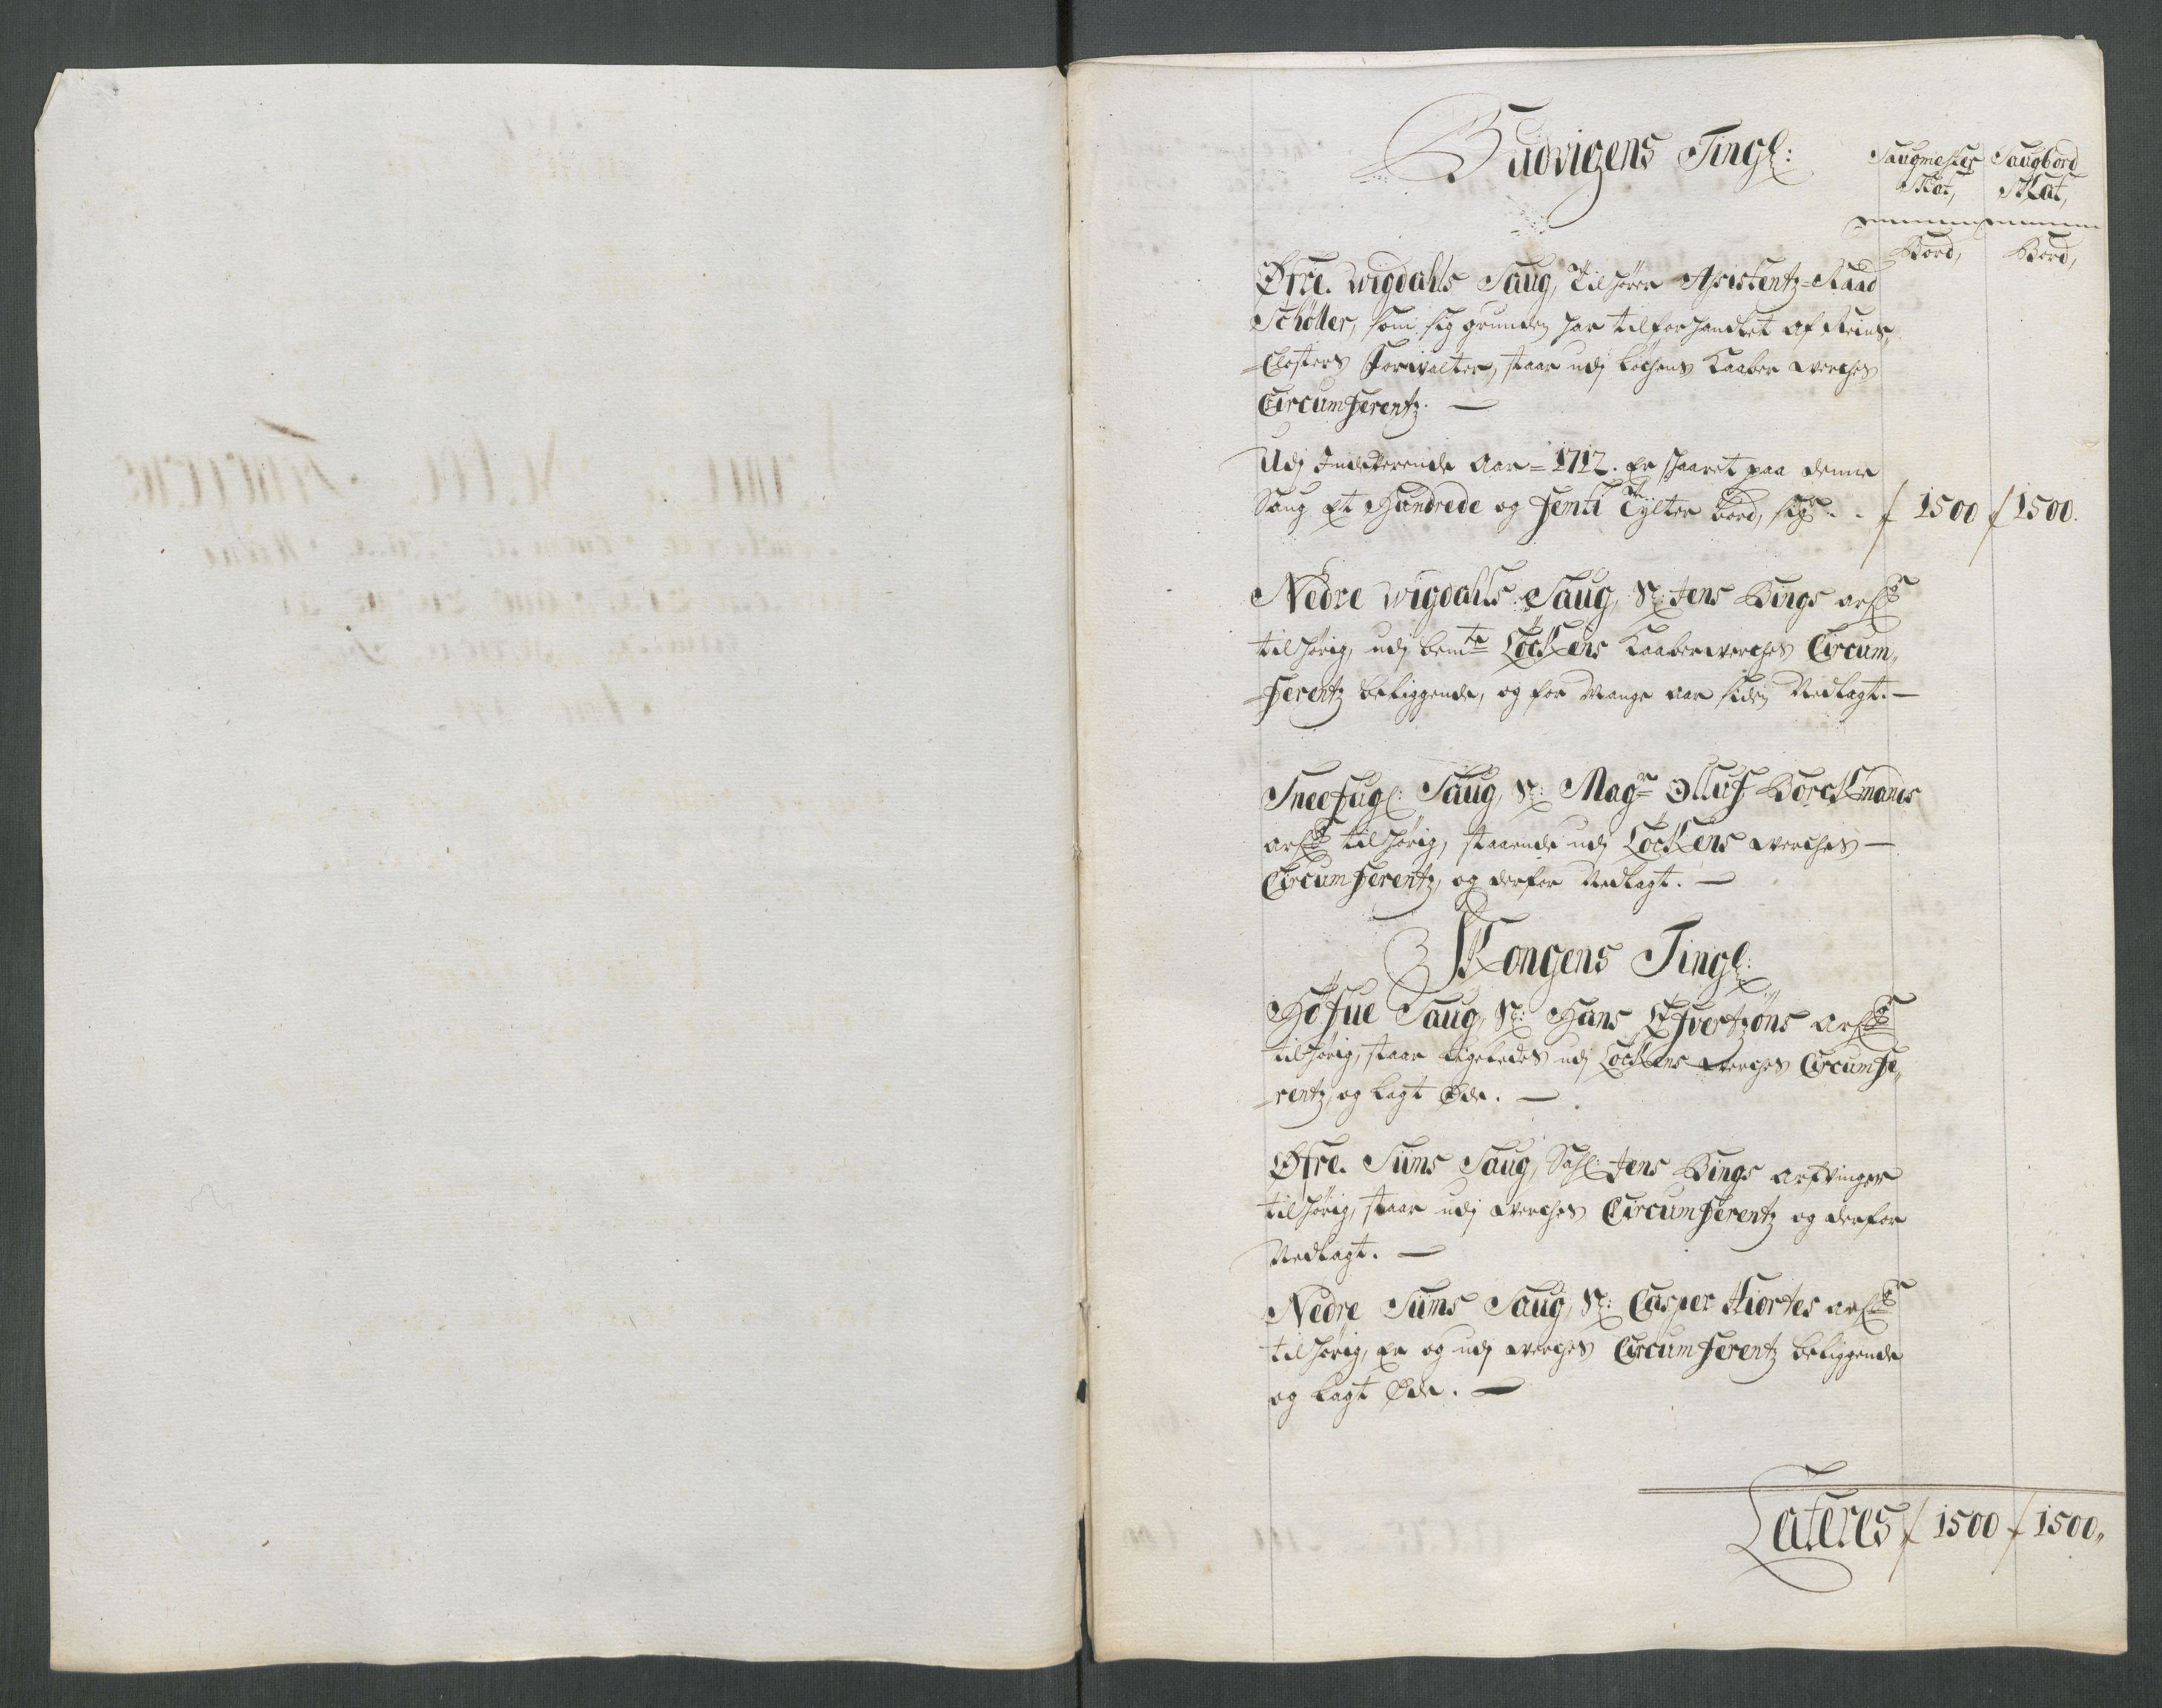 Budvigens Tingl:
Saugmester Skat,
Saugbord Skat,
Bord,
Bord,
Øfre. Wigdahls Saug, Tilhører Assistentz-Raad
Schøller, som sig grunden har tilforhandlet af Reins
Closters Forvalter, staar udj Løchens Kaaber Werches
Circumferentz. —
Udj Indeværende Aar - 1712. Er skaaret paa denne
Saug Et Hundrede og femti Tylter bord, sigr. . 1500 1500.
Nedre Wigdahls Saug, Sl: Jens Bings arfr
tilhørig, udj bemte Løckens Kaaberwerches Circum„
ferentz beliggende, og for Mange aar siden Nedlagt. —
Sneefugl: Saug, Sl: Magr Olluf Borckmands
arfr tilhørig, staaende udj Løckens Werches —
Circumferentz, og derfor Nedlagt. —
Kongens Tingl:
Høfue Saug, Sl: Hans Efvertzøns arfr
tilhørig, staar ligeledes udj Løckens Werches Circumfe„
rentz, og lagt Øde. —
Øfre. Siims Saug, Sahl: Jens Bings arfvinger
tilhørig, staar udj Werches Circumferentz og derfor
Nedlagt. —
Nedre Siims Saug, Sl: Casper Hiortes arfr
tilhørig, Er og udj Werches Circumferentz beliggende
og lagt Øde. —
Lateres 1500 1500„